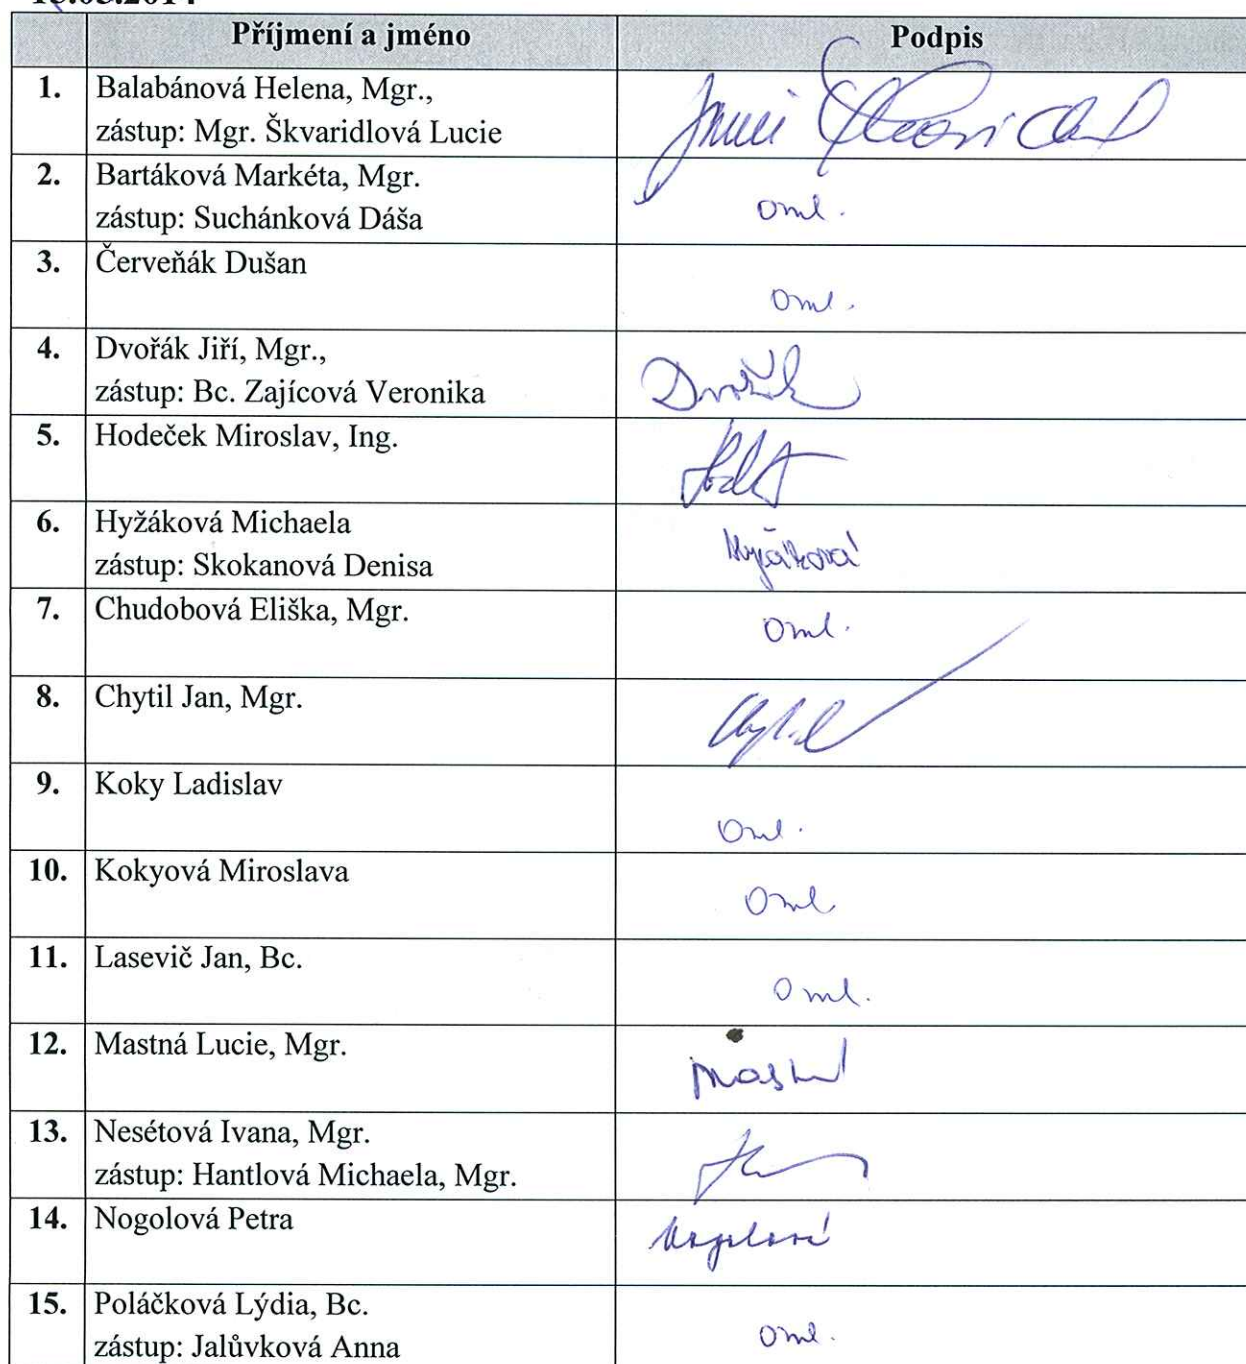 Příjmení a jméno Podpis
1. Balabánová Helena, Mgr.,
zástup: Mgr. Škvaridlová Lucie
2. Bartáková Markéta, Mgr.
zástup: Suchánková Dáša oml.
3. Červeňák Dušan
oml.
4. Dvořák Jiří, Mgr.,
zástup: Bc. Zajícová Veronika Dvořák
5. Hodeček Miroslav, Ing.
6. Hyžáková Michaela
zástup: Skokanová Denisa Hyžáková
7. Chudobová Eliška, Mgr.
oml.
8. Chytil Jan, Mgr.
Chytil
9. Koky Ladislav
oml.
10. Kokyová Miroslava
oml.
11. Lasevič Jan, Bc.
oml.
12. Mastná Lucie, Mgr.
Mastná
13. Nesétová Ivana, Mgr.
zástup: Hantlová Michaela, Mgr.
14. Nogolová Petra
Nogolová
15. Poláčková Lýdia, Bc.
zástup: Jalůvková Anna oml.